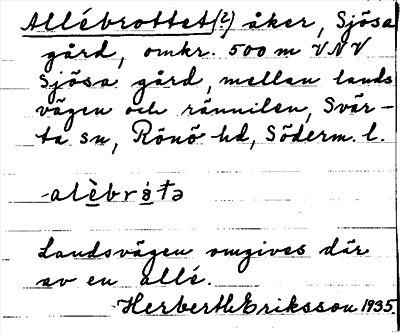 Allébrottet(?) åker, Sjösa
gård, omkr. 500 m VNV
Sjösa gård, mellan lands
vägen och rännilen, Svär-
ta sn, Rönö hd, Söderm. l.
-alèbrǻtə
Landsvägen omgives där
av en allé.
Herberth Eriksson 1935.